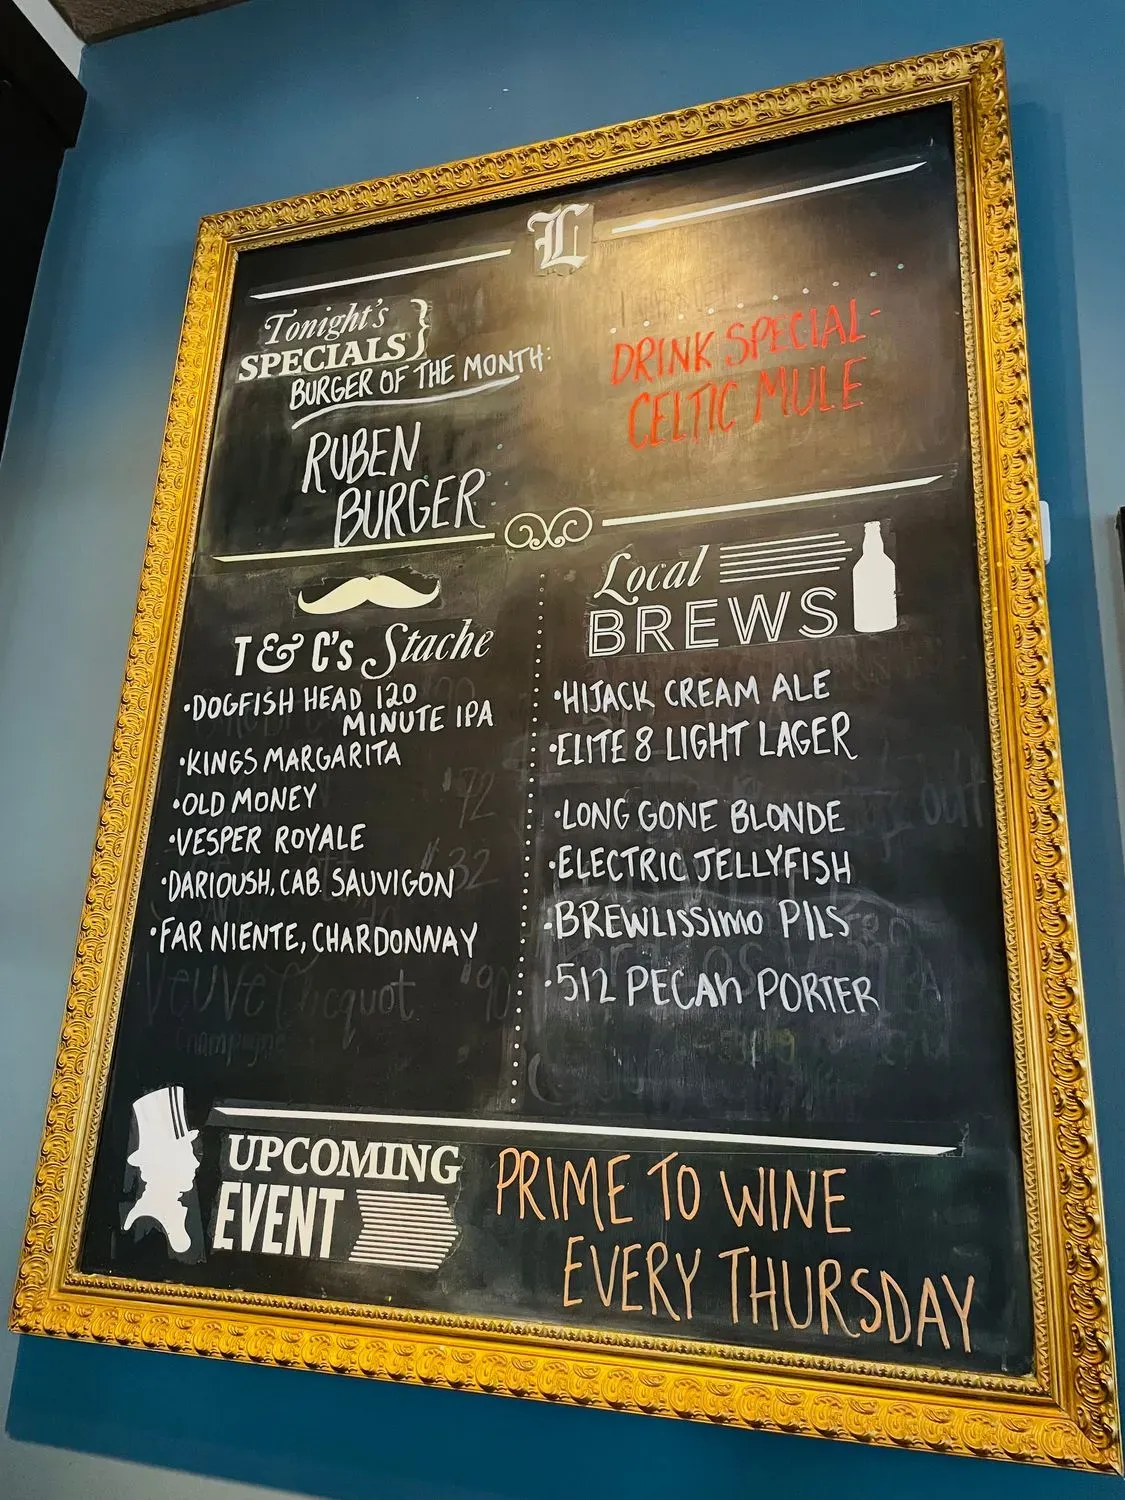 L
Tonight's
SPECIALS
BURGER OF THE MONTH:
RUBEN
BURGER
DRINK SPECIAL-
CELTIC MULE
T & C's Stache
•DOGFISH HEAD 120
MINUTE IPA
•KINGS MARGARITA
•OLD MONEY
•VESPER ROYALE
•DARIOUSH, CAB. SAUVIGON
•FAR NIENTE, CHARDONNAY
Veuve Clicquot 90
Champagne
Local
BREWS
•HIJACK CREAM ALE
•ELITE 8 LIGHT LAGER
•LONG GONE BLONDE
•ELECTRIC JELLYFISH
•BREWLISSIMO PILS
•512 PECAN PORTER
UPCOMING
EVENT
PRIME TO WINE
EVERY THURSDAY